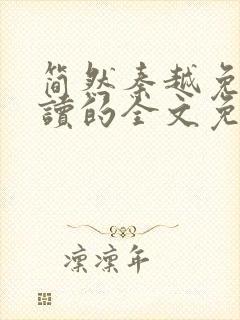 简然秦越免
讀的全文免
凛凛年